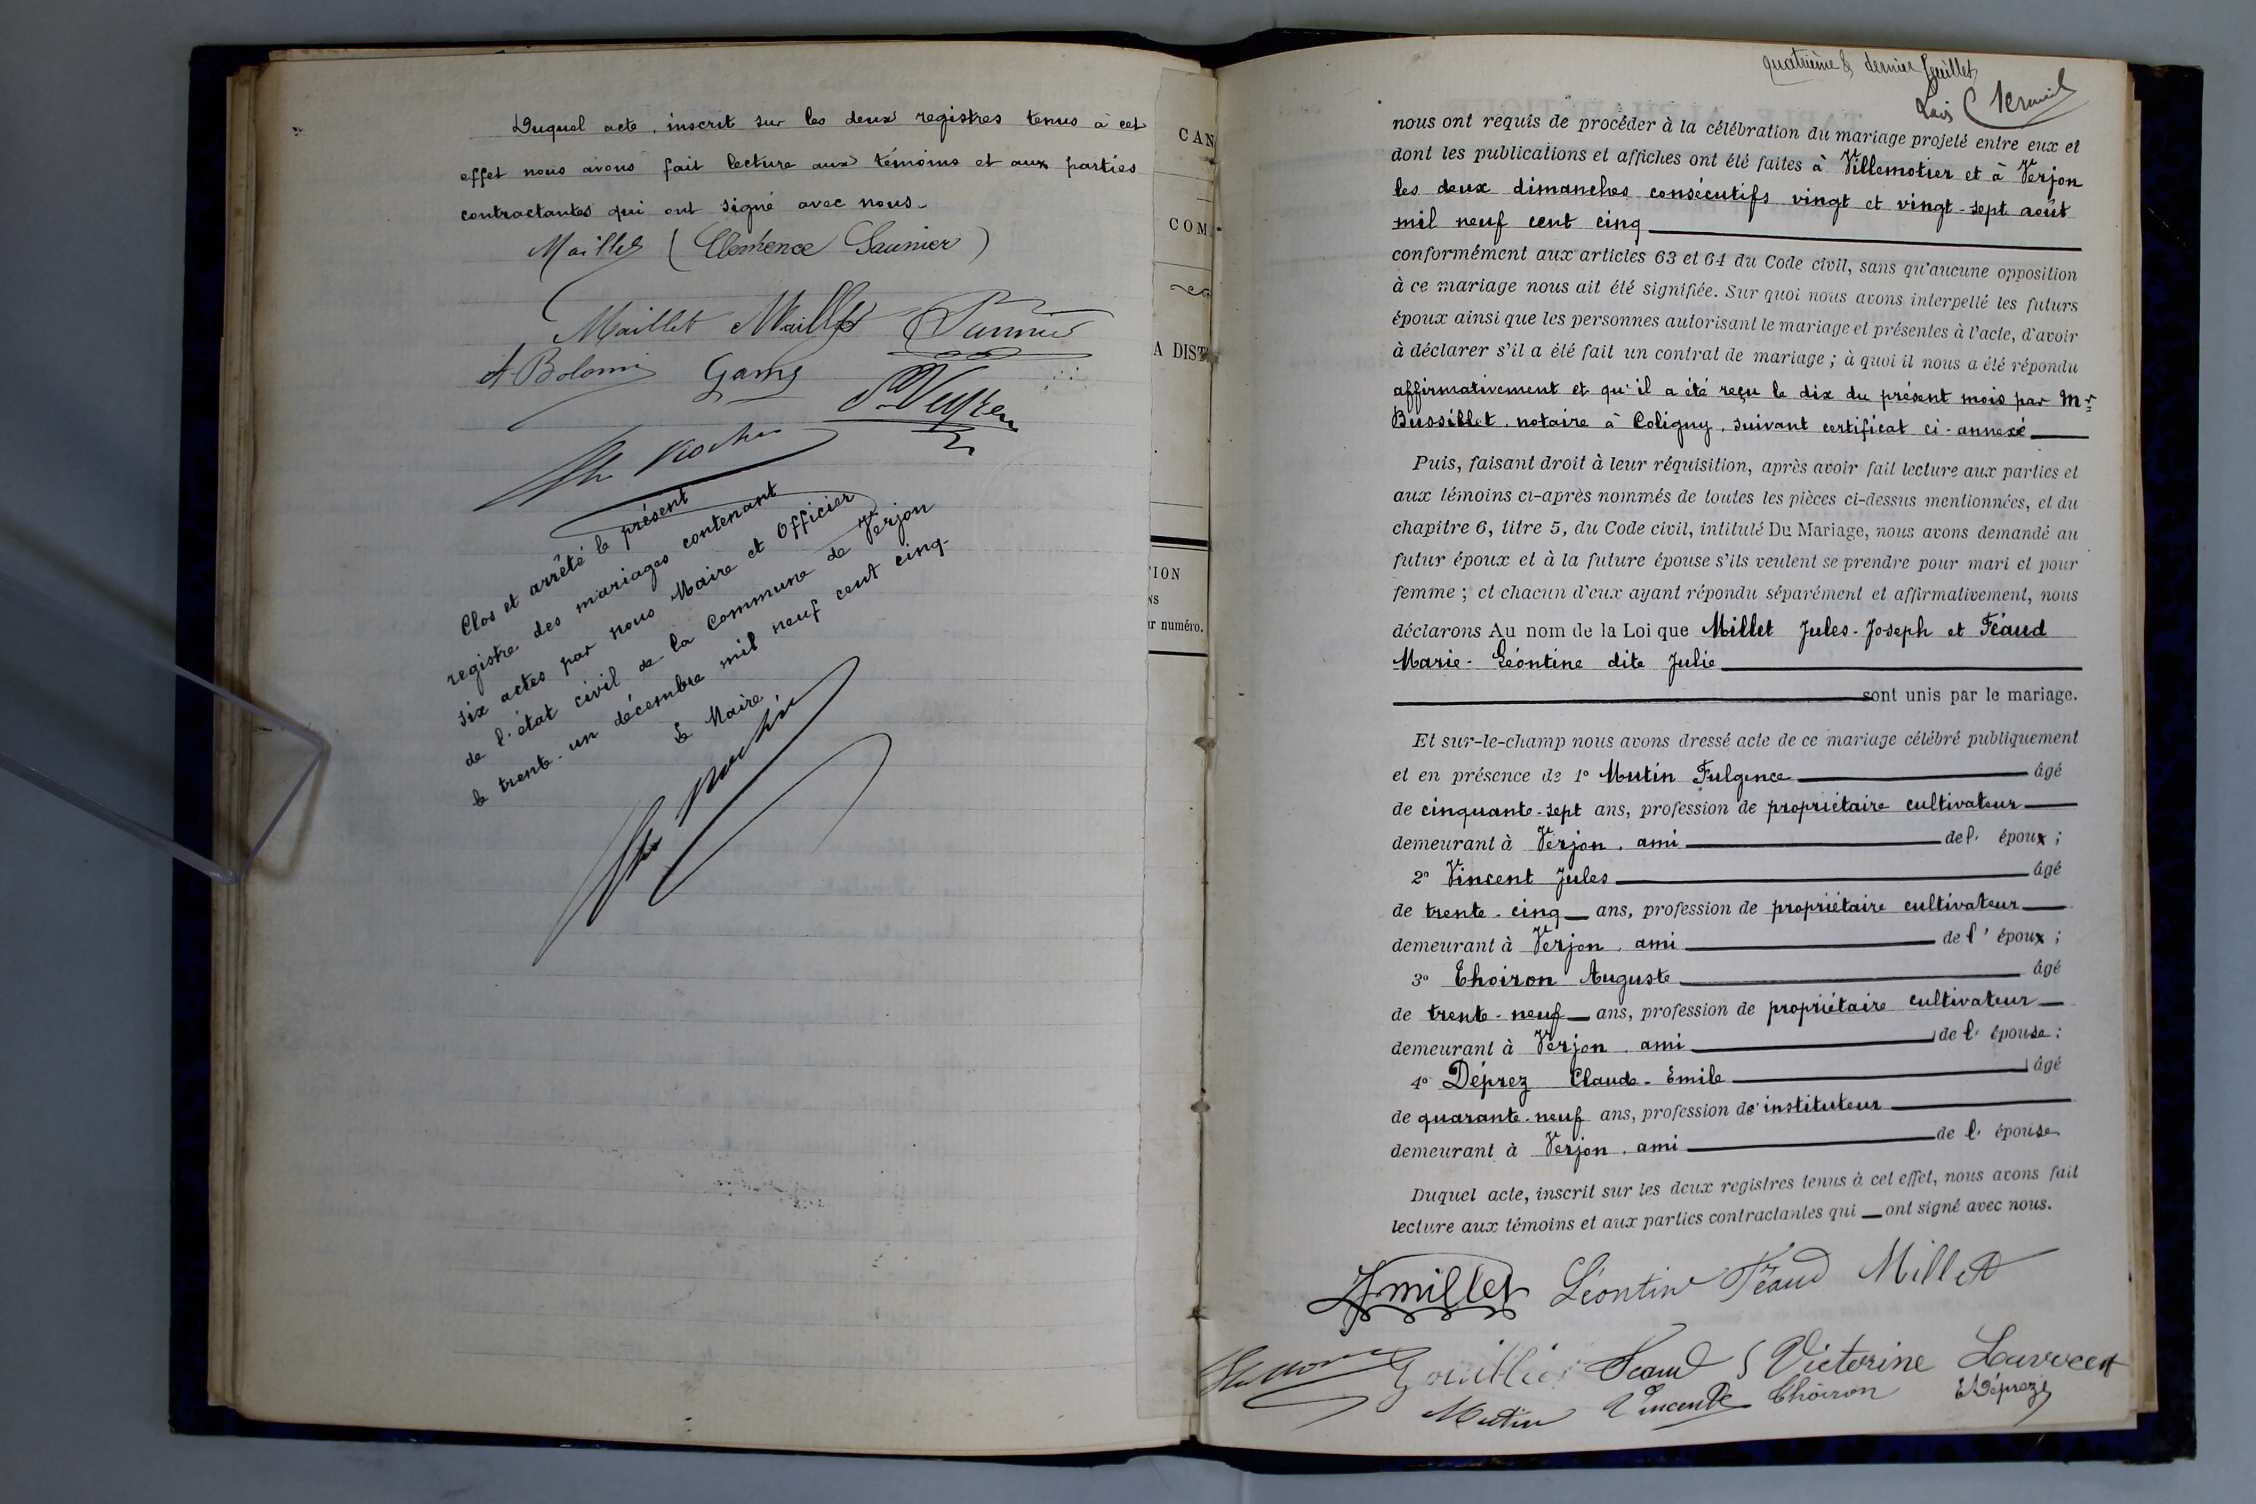 Duquel acte, inscrit sur les deux registres tenus à cet
effet nous avons fait lecture aux témoins et aux parties
contractantes qui ont signé avec nous.
Maillet (Clémence Saunier)
Maillet Maillet Saunier
Gams
Clos et arrêté le présent
registre des mariages contenant
six actes par nous Maire et Officier
de l'état civil de la Commune de Verjon
le trente-un décembre mil neuf cent cinq.
Le Maire
CAN
COM
A DIST
ION
NS
ur numéro.
quatrième & dernier feuillet
nous ont requis de procéder à la célébration du mariage projeté entre eux et
dont les publications et affiches ont été faites à Villemotier et à Verjon
les deux dimanches consécutifs vingt et vingt-sept août
mil neuf cent cinq
conformément aux articles 63 et 64 du Code civil, sans qu'aucune opposition
à ce mariage nous ait été signifiée. Sur quoi nous avons interpellé les futurs
époux ainsi que les personnes autorisant le mariage et présentes à l'acte, d'avoir
à déclarer s'il a été fait un contrat de mariage ; à quoi il nous a été répondu
affirmativement et qu'il a été reçu le dix du présent mois par Mr
Bussillet, notaire à Coligny, suivant certificat ci-annexé
Puis, faisant droit à leur réquisition, après avoir fait lecture aux parties et
aux témoins ci-après nommés de toutes les pièces ci-dessus mentionnées, et du
chapitre 6, titre 5, du Code civil, intitulé Du Mariage, nous avons demandé au
futur époux et à la future épouse s'ils veulent se prendre pour mari et pour
femme ; et chacun d'eux ayant répondu séparément et affirmativement, nous
déclarons Au nom de la Loi que Millet Jules-Joseph et Féaud
Marie-Léontine dite Julie
sont unis par le mariage.
Et sur-le-champ nous avons dressé acte de ce mariage célébré publiquement
et en présence de 1° Mutin Fulgence âgé
de cinquante-sept ans, profession de propriétaire cultivateur
demeurant à Verjon, ami de l'époux ;
2° Vincent Jules âgé
de trente-cinq ans, profession de propriétaire cultivateur
demeurant à Verjon, ami de l'époux ;
3° Choiron Auguste âgé
de trente-neuf ans, profession de propriétaire cultivateur
demeurant à Verjon, ami de l'épouse ;
4° Déprez Claude-Emile âgé
de quarante-neuf ans, profession de instituteur
demeurant à Verjon, ami de l'épouse
Duquel acte, inscrit sur les deux registres tenus à cet effet, nous avons fait
lecture aux témoins et aux parties contractantes qui ont signé avec nous.
JMillet Léontine Féaud Millet
Féaud Victorine
Mutin Vincent Choiron EDéprez